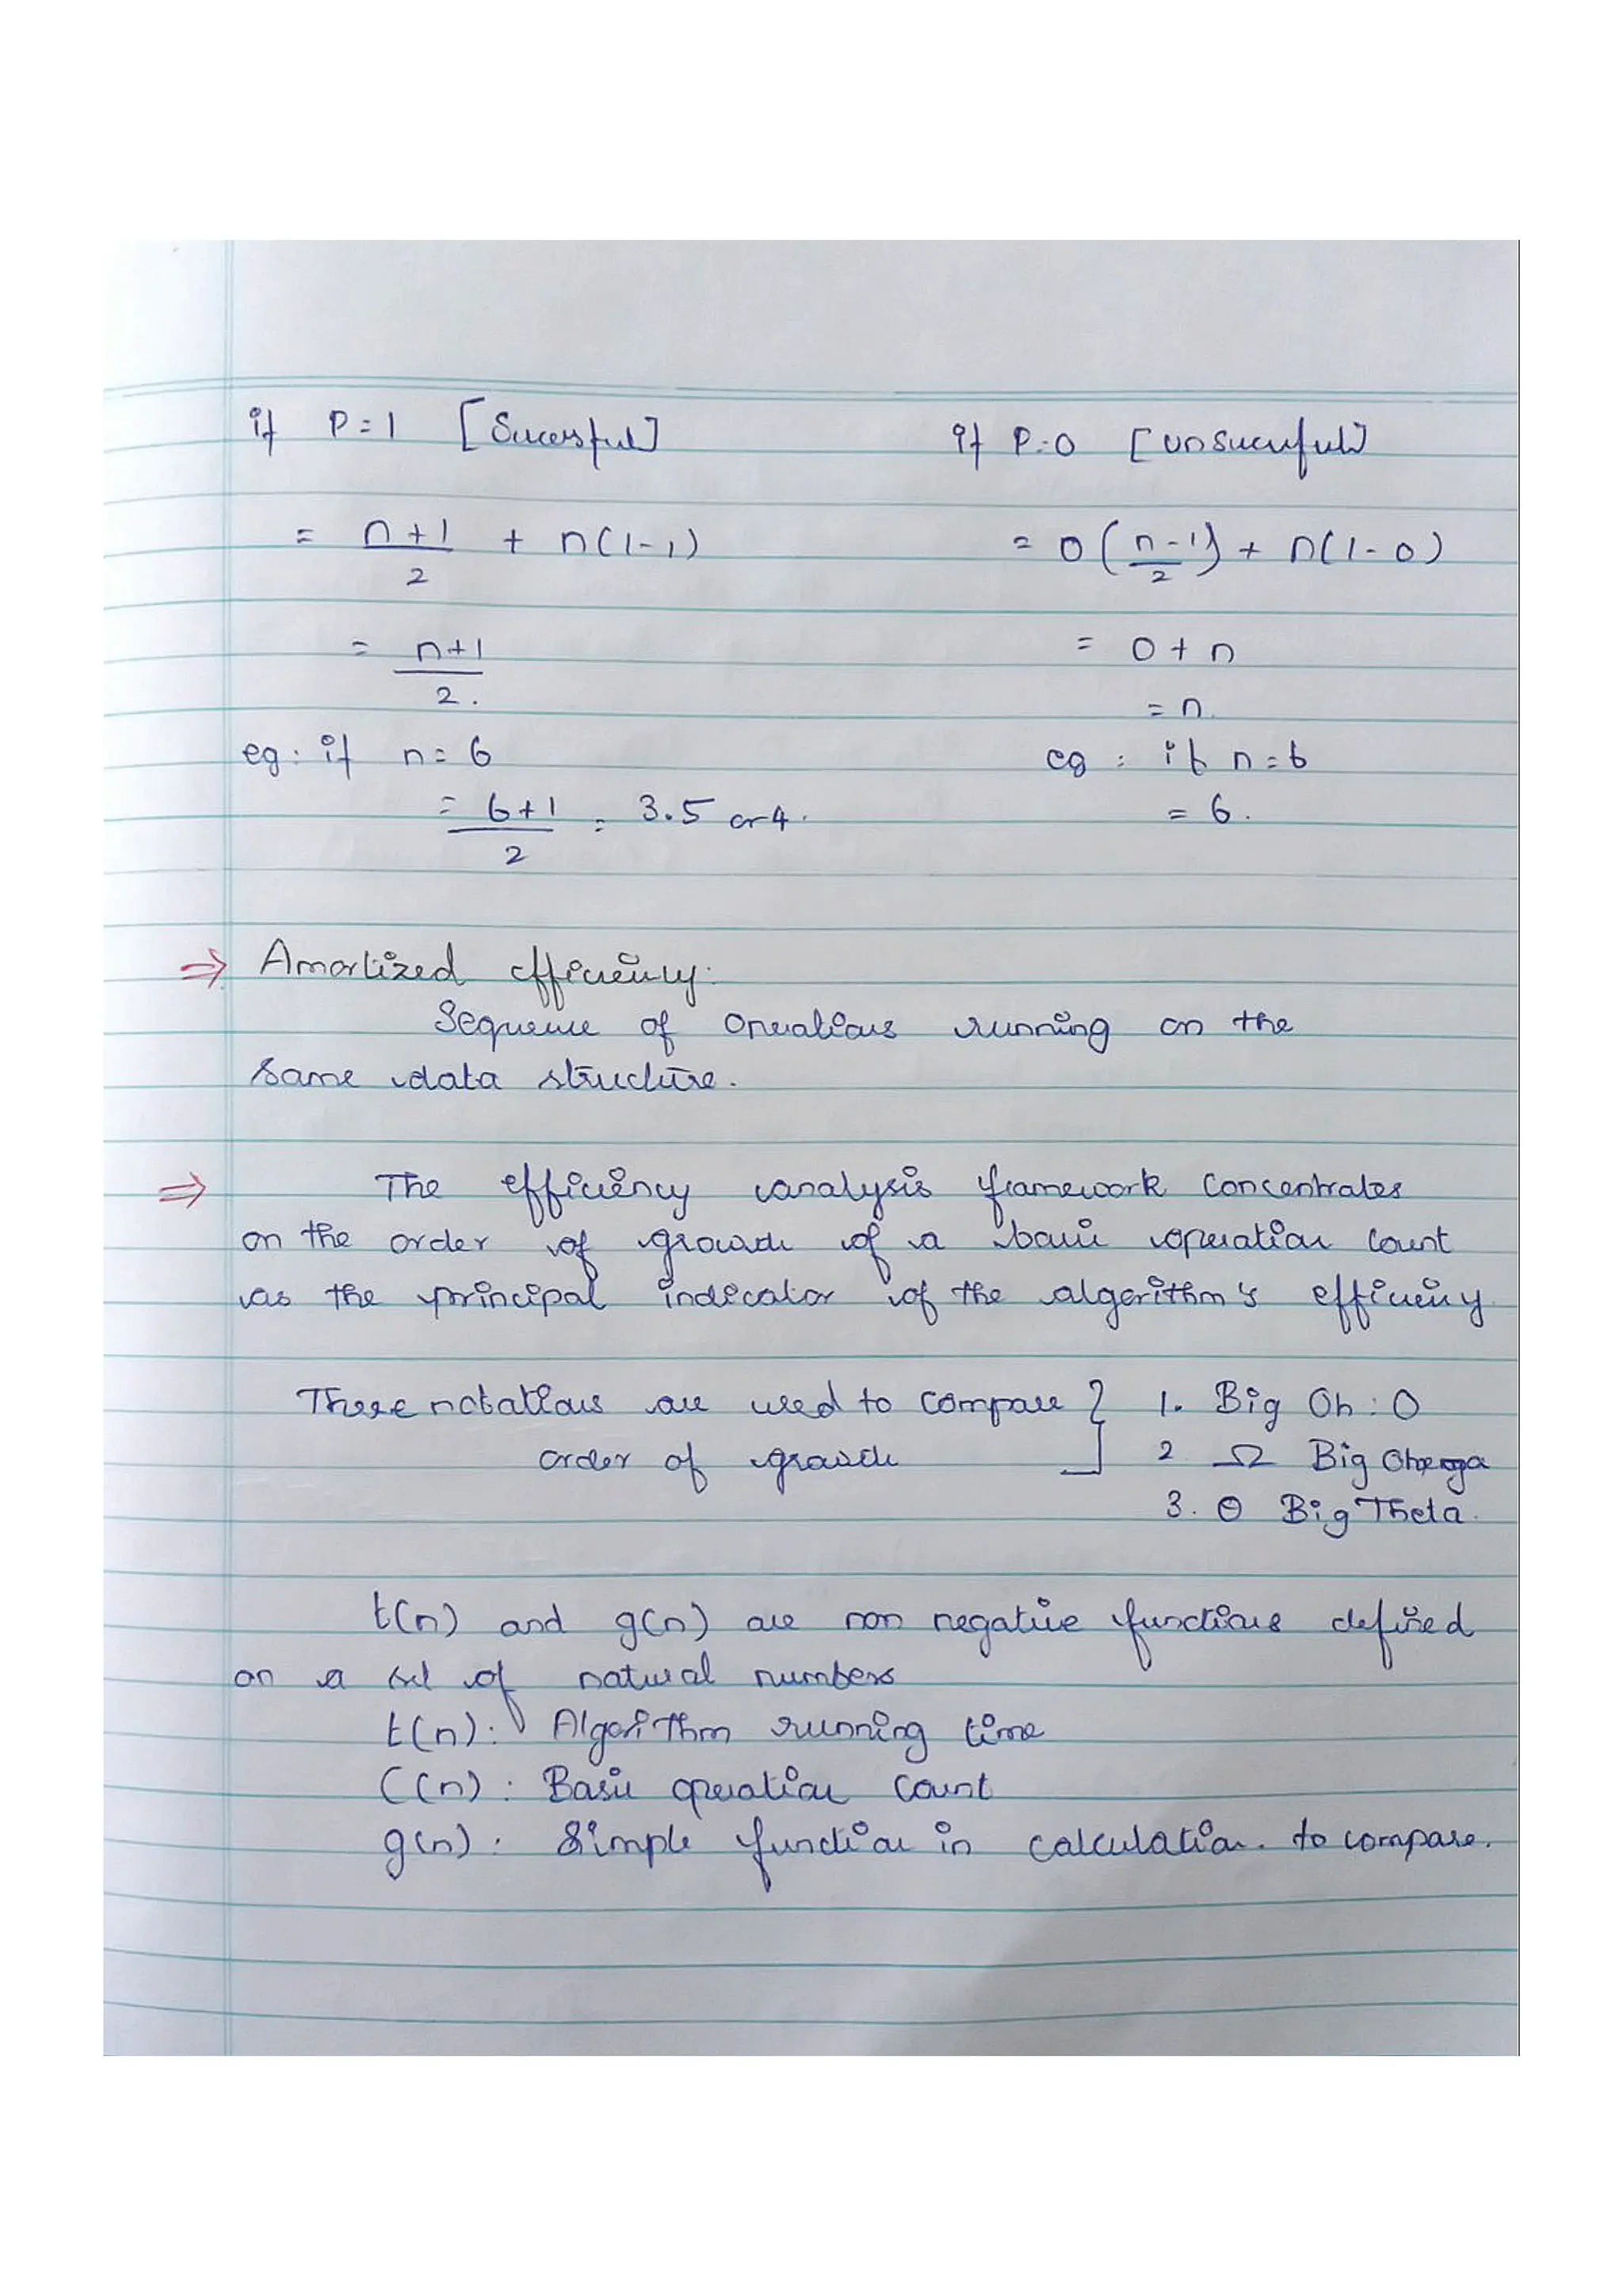 if P=1 [Sucessful]
if P=0 [unsucessful]
= n+1/2 + n(1-1)
= 0(n-1/2) + n(1-0)
= n+1/2.
= 0+n
= n.
eg: if n=6
eg: if n=6
= 6+1/2 = 3.5 or 4.
= 6.
⇒ Amortized efficiency:
Sequence of operations running on the
same data structure.
⇒ The efficiency analysis framework concentrates
on the order of growth of a basic operation count
as the principal indicator of the algorithm's efficiency.
These notations are used to compare
order of growth
1. Big Oh: O
2 Ω Big Ohmega
3. Θ Big Theta.
t(n) and g(n) are non negative functions defined
on a set of natural numbers
t(n): Algorithm running time
C(n): Basic operation count
g(n): Simple function in calculation. to compare.